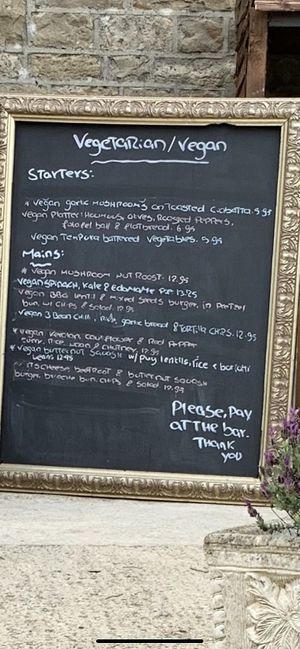 Vegetarian/Vegan
Starters:
* Vegan garlic MUSHROOMS on Toasted Ciabatta. 5.95
Vegan Platter: Houmous, olives, Roasted Peppers,
falafel ball & flatbread. 6.95
Vegan Tempura battered vegetables. 5.95
Mains:
* Vegan MUSHROOM Nut Roast. 12.95
Vegan spinach, kale & edamame Pie 13.25
Vegan BBQ lentil & mixed seeds burger, in Pretzel
bun, w/ CHIPS & Salad. 12.95
Vegan 3 Bean CHILLI, Rice, garlic bread & Tortilla CHIPS. 12.95
* Vegan Keralan cauliflower & Red Pepper
curry, Rice, naan & chutney. 12.95
* Vegan butternut Squash w/ puy lentils, rice &
beans 12.95
goats cheese beetroot & butternut squash
burger, brioche bun, chips & Salad 12.95
Please, Pay
at the bar.
Thank
you